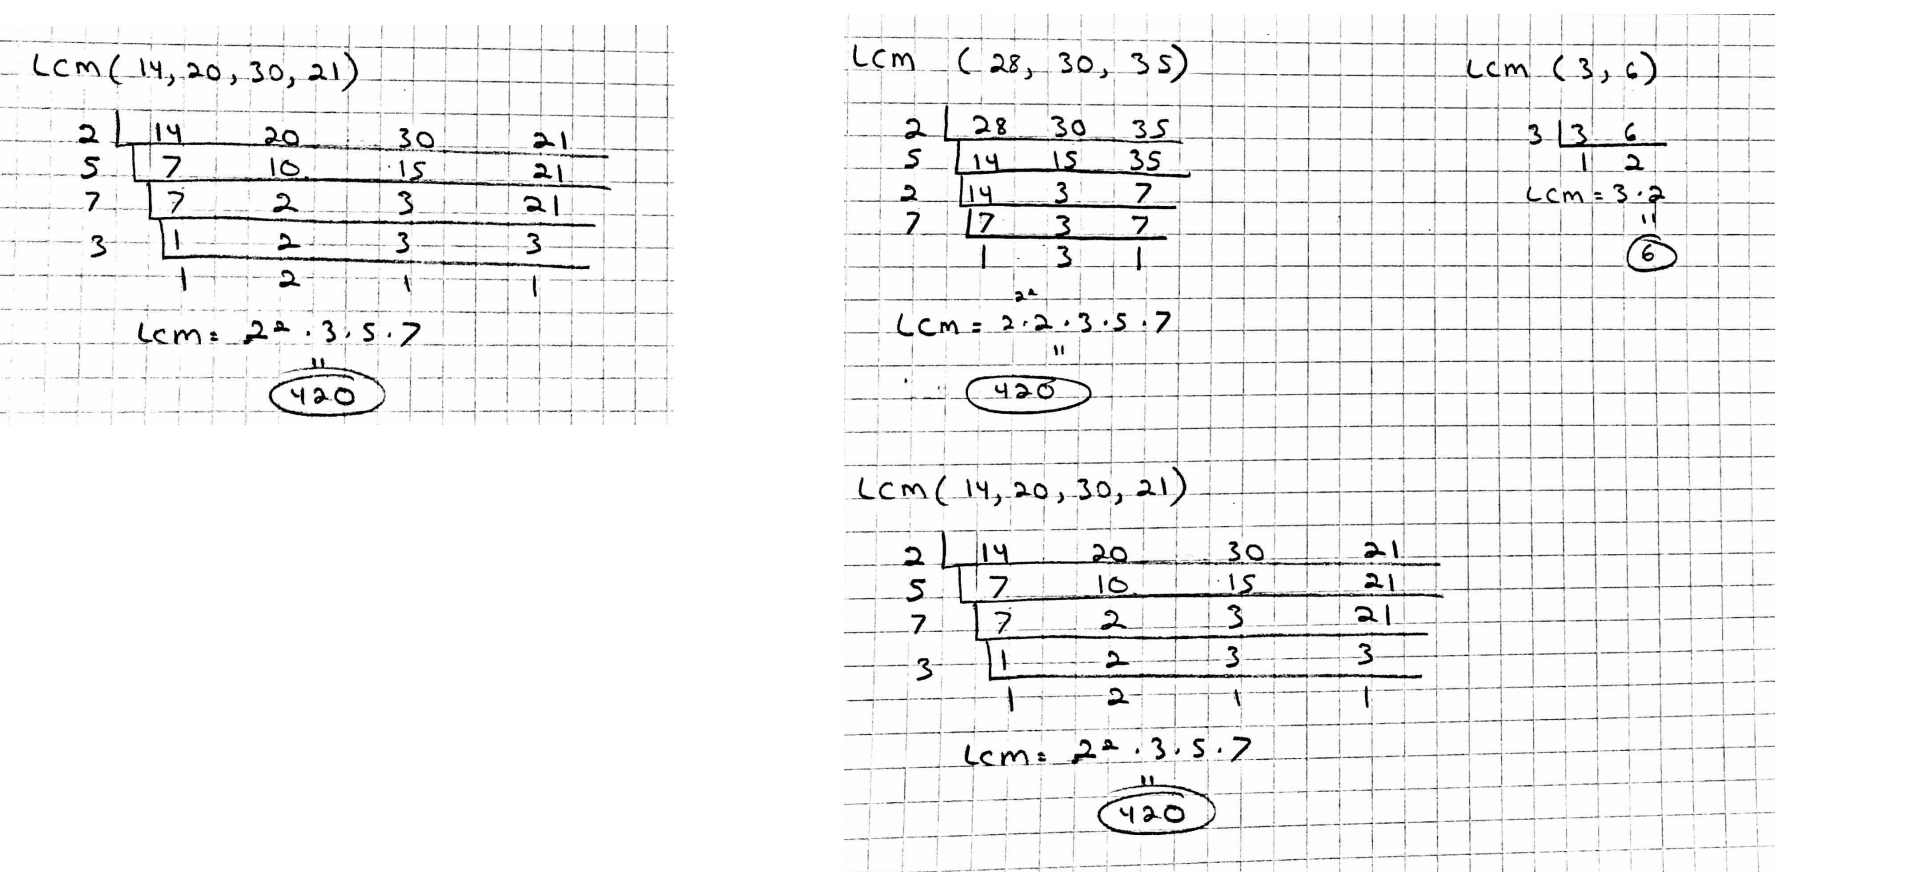 Lcm ( 14, 20, 30, 21)
2 14 20 30 21
5 7 10 15 21
7 7 2 3 21
3 1 2 3 3
1 2 1 1
Lcm = 2² . 3 . 5 . 7
"
420
Lcm ( 28, 30, 35)
2 28 30 35
5 14 15 35
2 14 3 7
7 7 3 7
1 3 1
2²
Lcm = 2 . 2 . 3 . 5 . 7
"
420
Lcm ( 3, 6)
3 3 6
1 2
Lcm = 3 . 2
"
6
Lcm ( 14, 20, 30, 21)
2 14 20 30 21
5 7 10 15 21
7 7 2 3 21
3 1 2 3 3
1 2 1 1
Lcm = 2² . 3 . 5 . 7
"
420